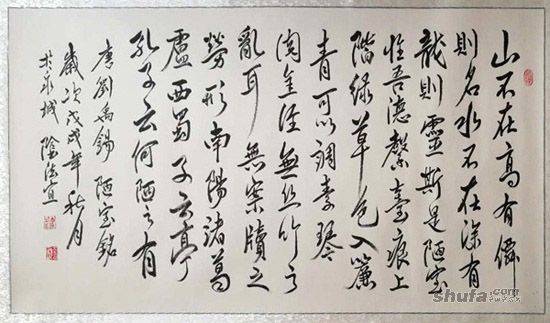 山不在高有僊
則名水不在深有
龍則靈斯是陋室
惟吾德馨臺痕上
階綠草色入簾
青可以調素琴
閱金經無丝竹之
亂耳無案牘之
勞形南陽諸葛
廬西蜀子云亭
孔子云何陋之有
唐劉禹錫陋室銘
歲次戊戌年秋月
於永城
shufa.com